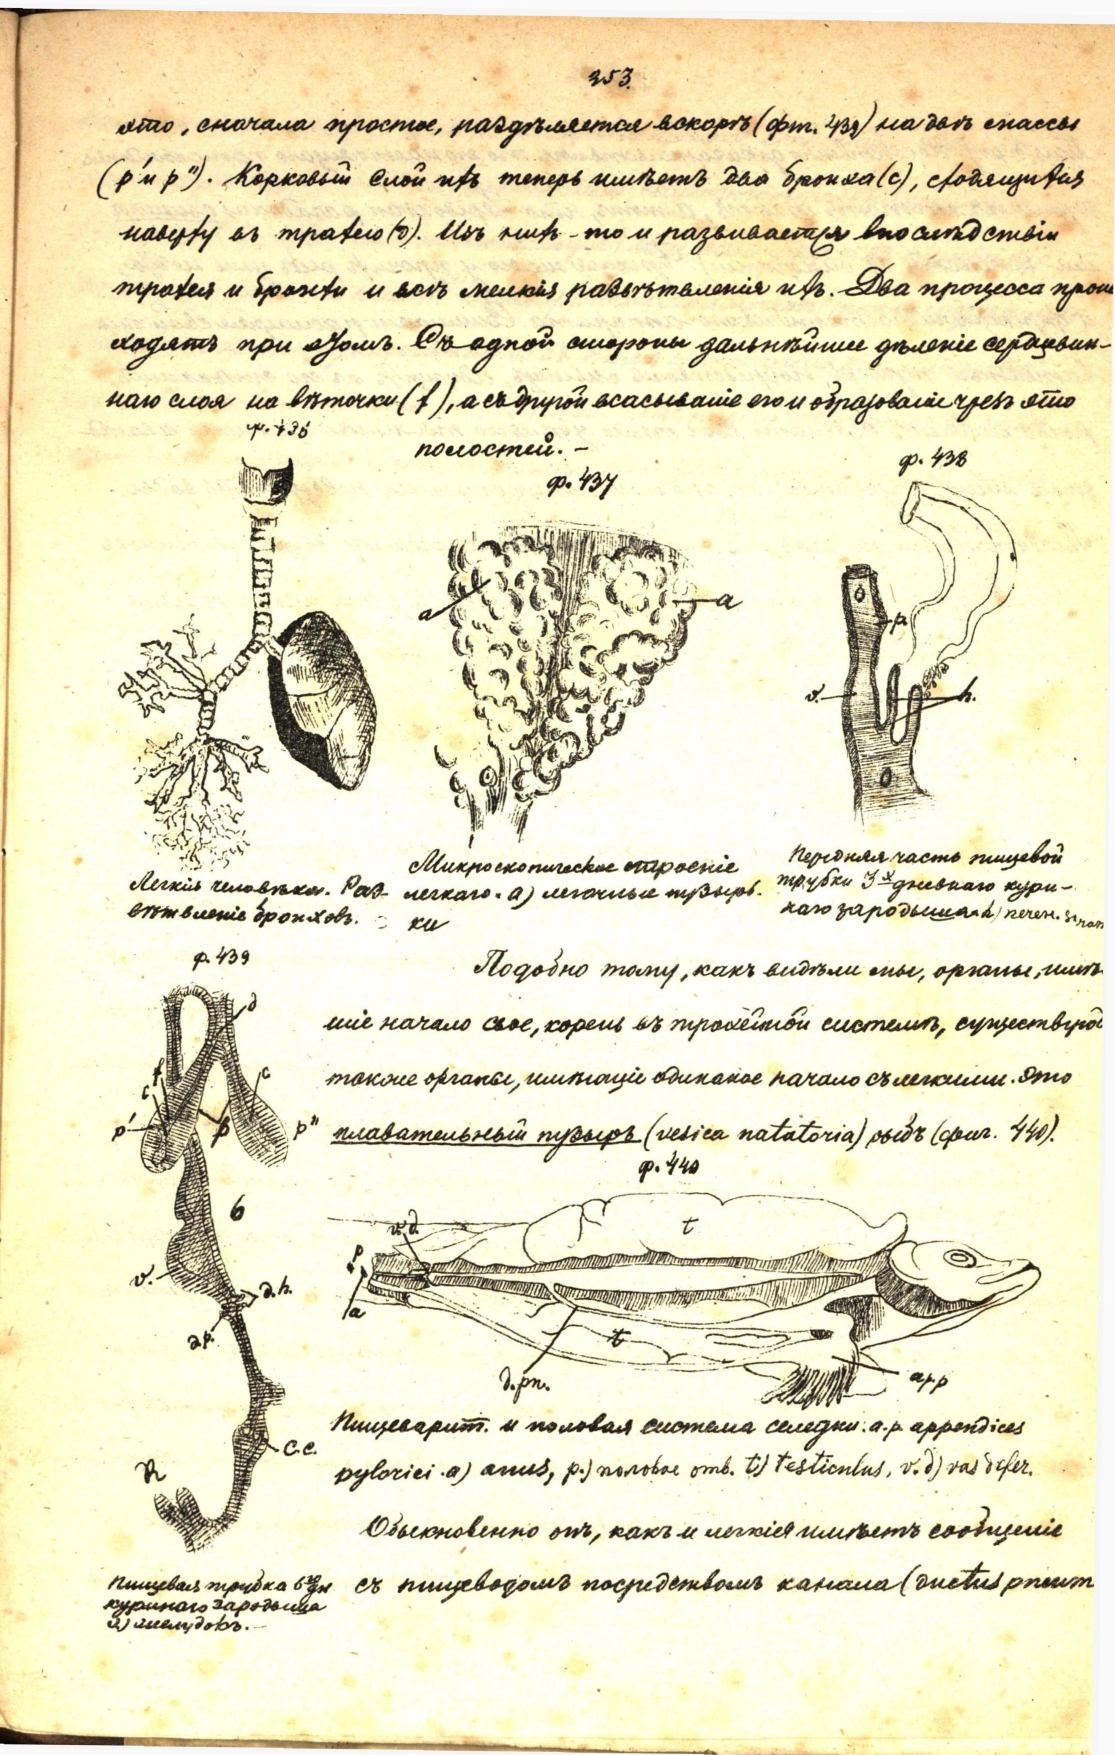 353.
это, сначала простое, раздѣляется вскорѣ (фиг. 439) на двѣ массы
(p' и p"). Корковый слой ихъ теперь имѣетъ два бронха (c), сходящихся
наверху въ трахею (d). Изъ нихъ-то и развивается впослѣдствіи
трахея и бронхи и всѣ мелкія развѣтвленія ихъ. Два процесса проис
ходятъ при этомъ. Съ одной стороны дальнѣйшее дѣленіе сердцевин-
наго слоя на вѣточки (f), а съ другой всасываніе его и образованіе чрезъ это
полостей. –
ф. 436
ф. 437
ф. 438
a
a
p.
v.
h.
Легкія человѣка. Раз-
вѣтвленіе бронховъ.
Микроскопическое строеніе
легкаго. a) легочные пузырь-
ки
Передняя часть пищевой
трубки 3х дневнаго кури-
наго зародыша. h) печен.
ф. 439
d
f
c
c
p'
p
p"
б
v.
d.h.
d.p.
c.c.
R
Пищевая трубка 6ти дн
куринаго зародыша
v) желудокъ. –
Подобно тому, какъ видѣли мы, органы, имѣв
шіе начало свое, корень въ трахейной системѣ, существуют
также органы, имѣющіе одинакое начало съ легкими. Это
плавательный пузырь (vesica natatoria) рыбъ (фиг. 440).
ф. 440
t
v.d.
p
a
t
d.pn.
app
Пищеварит. и половая система селедки. a.p. appendices
pylorici. a) anus, p.) половое отв. t) testiculus, v.d) vas defer.
Обыкновенно онъ, какъ и легкія имѣетъ сообщеніе
съ пищеводомъ посредствомъ канала (ductus pneum